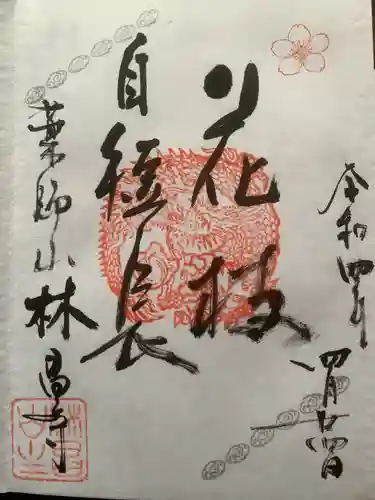 令和四年
四月廿四日
花枝
自短長
薬師山
林昌寺